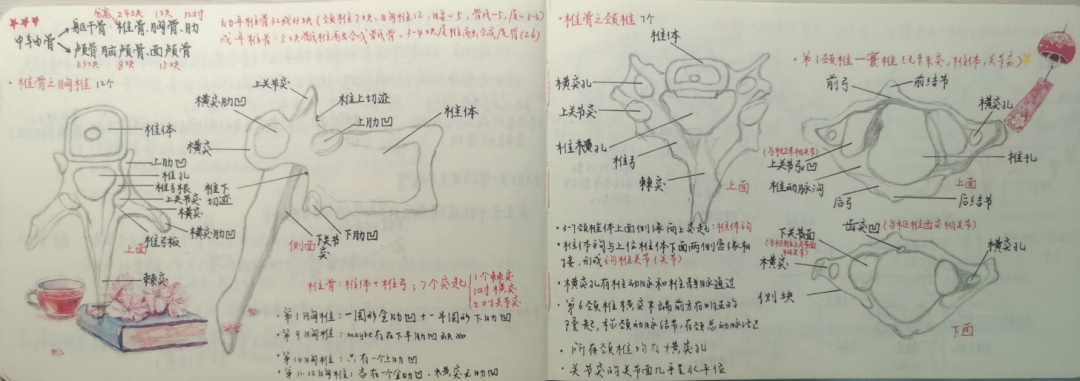 中轴骨
躯干骨 椎骨、胸骨、肋
24块 1块 12对
颅骨 脑颅骨、面颅骨
23块 8块 15块
·椎骨之胸椎 12个
椎体
上肋凹
椎孔
椎弓根
上关节突
横突
横突肋凹
椎弓板
棘突
上面
上关节突
横突肋凹
椎上切迹
上肋凹
椎体
横突
椎下切迹
下关节突
下肋凹
侧面
椎骨:椎体+椎弓;7个突起
1个棘突
1对横突
2对关节突
·第1胸椎:一圆形全肋凹+一半圆形下肋凹
·第9胸椎:maybe存在下半肋凹
·第10胸椎:只有一个上肋凹
·第11、12胸椎:各有一个全肋凹,横突无肋凹
·椎骨之颈椎 7个
椎体
横突孔
上关节突
椎弓
棘突
上面
·3-7颈椎体上面侧缘向上突起:椎体钩
·椎体钩与上位椎体下面两侧唇缘相接,形成钩椎关节(关节)
·横突孔有椎动脉和椎静脉通过
·第6颈椎横突末端前方有明显的隆起,称颈动脉结节,有颈总动脉经过
·所有颈椎均有横突孔
·关节突的关节面几乎呈水平位
·第1颈椎—寰椎(无棘突、椎体、关节突)
前弓
前结节
横突孔
上关节凹
椎动脉沟
椎孔
后弓
后结节
上面
下关节面
齿突凹
(与枢椎齿突相关节)
横突孔
横突
侧块
下面